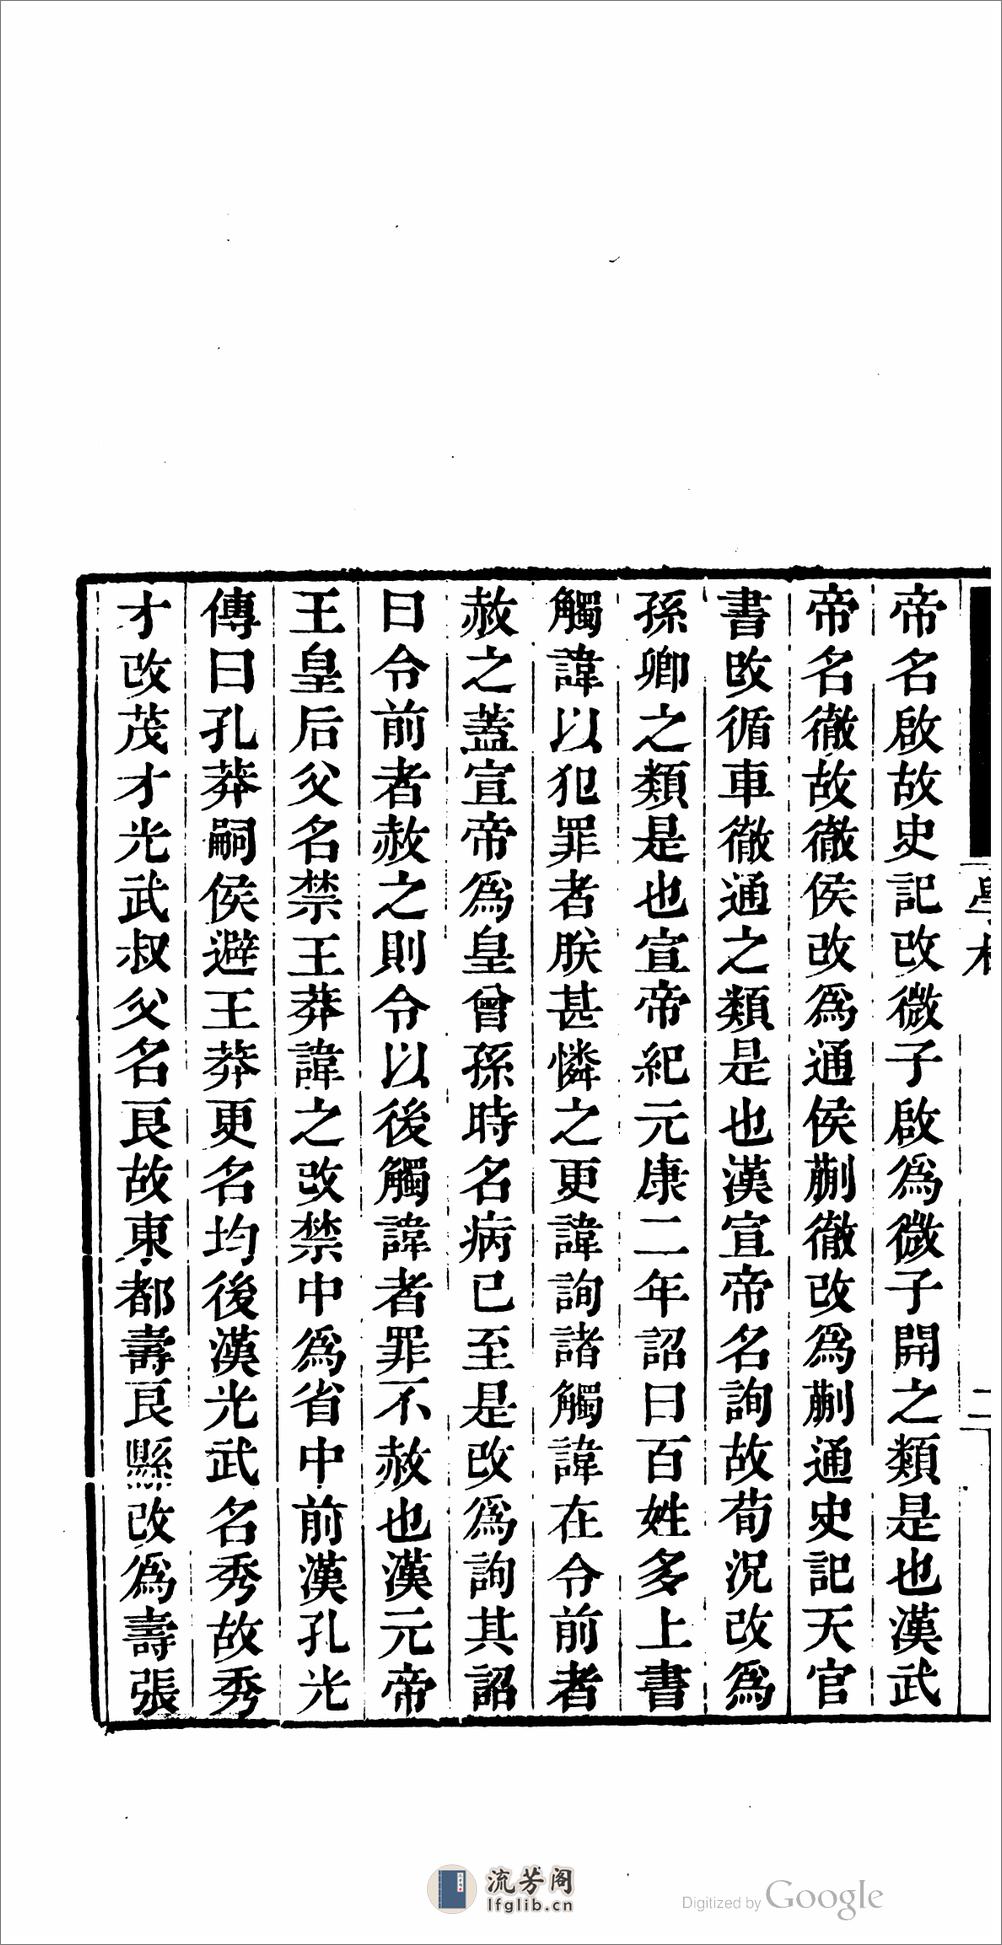 帝名啟故史記改微子啟爲微子開之類是也漢武
帝名徹故徹侯改爲通侯蒯徹改爲蒯通史記天官
書改循車徹通之類是也漢宣帝名詢故荀況改爲
孫卿之類是也宣帝紀元康二年詔曰百姓多上書
觸諱以犯罪者朕甚憐之更諱詢諸觸諱在令前者
赦之蓋宣帝爲皇曾孫時名病已至是改爲詢其詔
曰令前者赦之則令以後觸諱者罪不赦也漢元帝
王皇后父名禁王莽諱之改禁中爲省中前漢孔光
傳曰孔莽嗣侯避王莽更名均後漢光武名秀故秀
才改茂才光武叔父名良故東都壽良縣改爲壽張
二
流芳阁
lfglib.cn
Digitized by Google